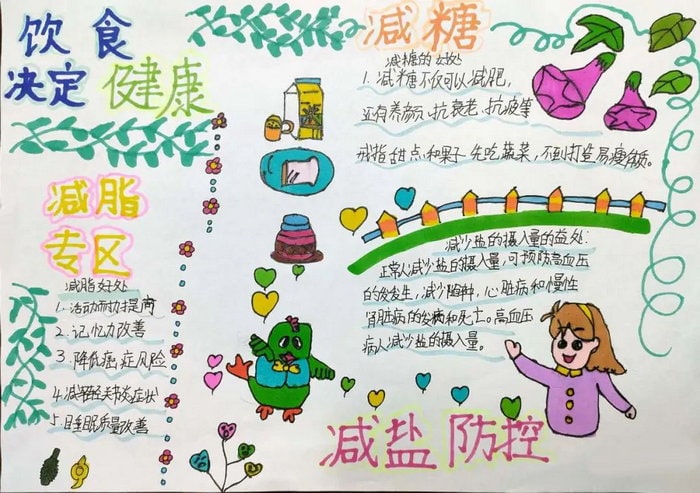 饮食
决定健康
减糖
减糖的好处
1.减糖不仅可以减肥,
还有养颜、抗衰老、抗疲等
戒指甜点和果子先吃蔬菜,不到打造易瘦体质。
减脂
专区
减脂好处
1.活动耐力提高
2.记忆力改善
3.降低癌症风险
4.减轻关节炎症状
5.睡眠质量改善
减少盐的摄入量的益处:
正常人减少盐的摄入量,可预防高血压
的发发生,减少胸肿,心脏病和慢性
肾脏病的发病和死亡。高血压
病人减少盐的摄入量。
减盐防控